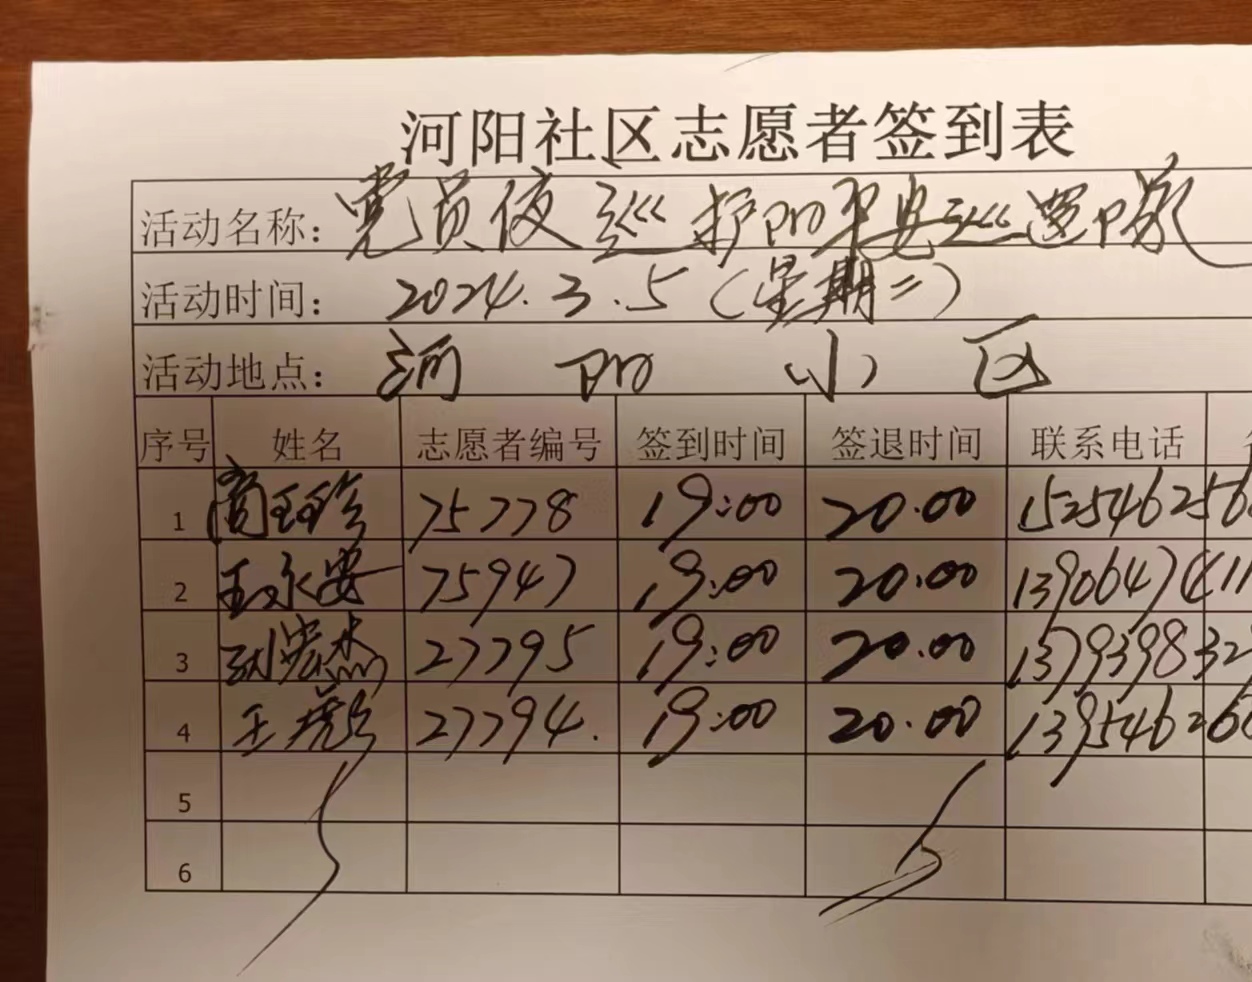 河阳社区志愿者签到表
活动名称：党员夜巡护阳平安巡逻队
活动时间：2024.3.5（星期二）
活动地点：河阳小区
序号 姓名 志愿者编号 签到时间 签退时间 联系电话
1 75778 19:00 20.00 152546256
2 王永安 75947 19:00 20.00 139064741
3 刘宏杰 27795 19:00 20.00 137939832
4 王 27794. 19:00 20.00 139546266
5
6